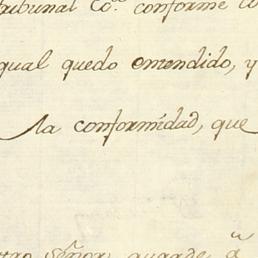 tribunal Co.ª conforme lo
qual quedo emendido, y
la conformidad, que
tro Señor guarde á